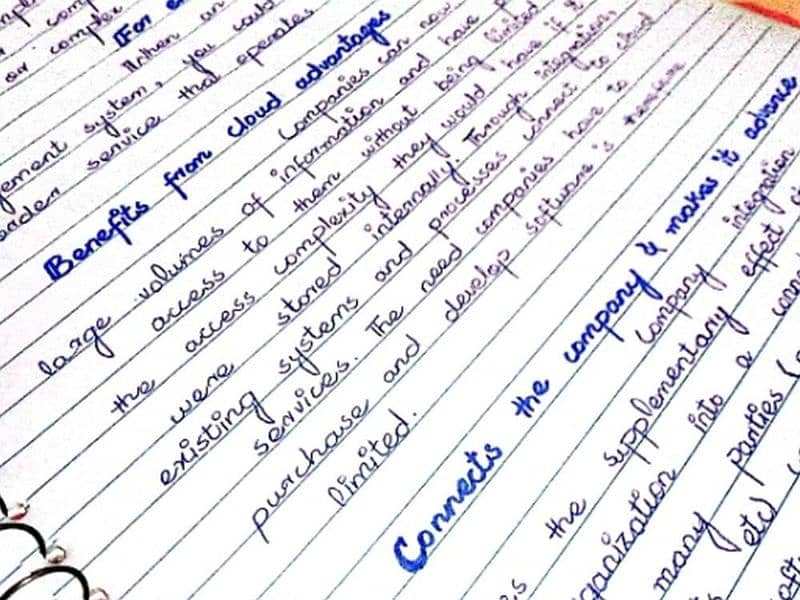 or complex
[For
When an
gement system, you could
service that operates
Benefits from cloud advantages
Companies can now
large volumes of information and have
access to them without being limited
the access complexity they would have if it
were stored internally. Through integration,
existing systems and processes connect to cloud
services. The need companies have to
purchase and develop software is therefore
limited.
Connects the company & makes it advance
Company integration
the supplementary effect
ganization into a
many parties (
etc)